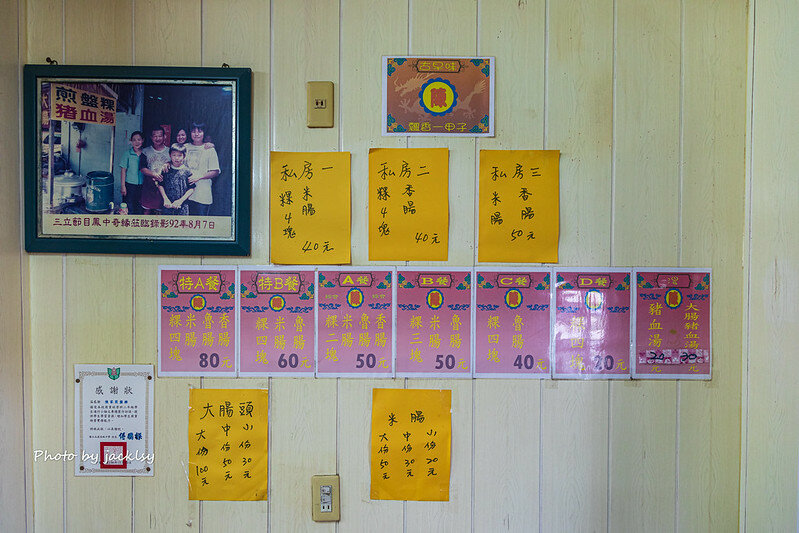 煎盤粿
猪血湯
三立節目鳳中奇緣莅臨錄影92年8月7日
古早味
陳
飄香一甲子
私房一
米腸
粿4塊
40元
私房二
香腸
粿4塊
40元
私房三
香腸
米腸
50元
特A餐
香腸
魯腸
米腸
粿四塊
80元
特B餐
魯腸
米腸
粿四塊
60元
A餐
香腸
魯腸
米腸
粿二塊
50元
B餐
魯腸
米腸
粿三塊
50元
C餐
魯腸
粿四塊
40元
D餐
粿四塊
20元
湯
大腸豬血湯
豬血湯
感謝狀
大腸頭
小份30元
中份50元
大份100元
米腸
小份20元
中份30元
大份50元
Photo by jacklsy